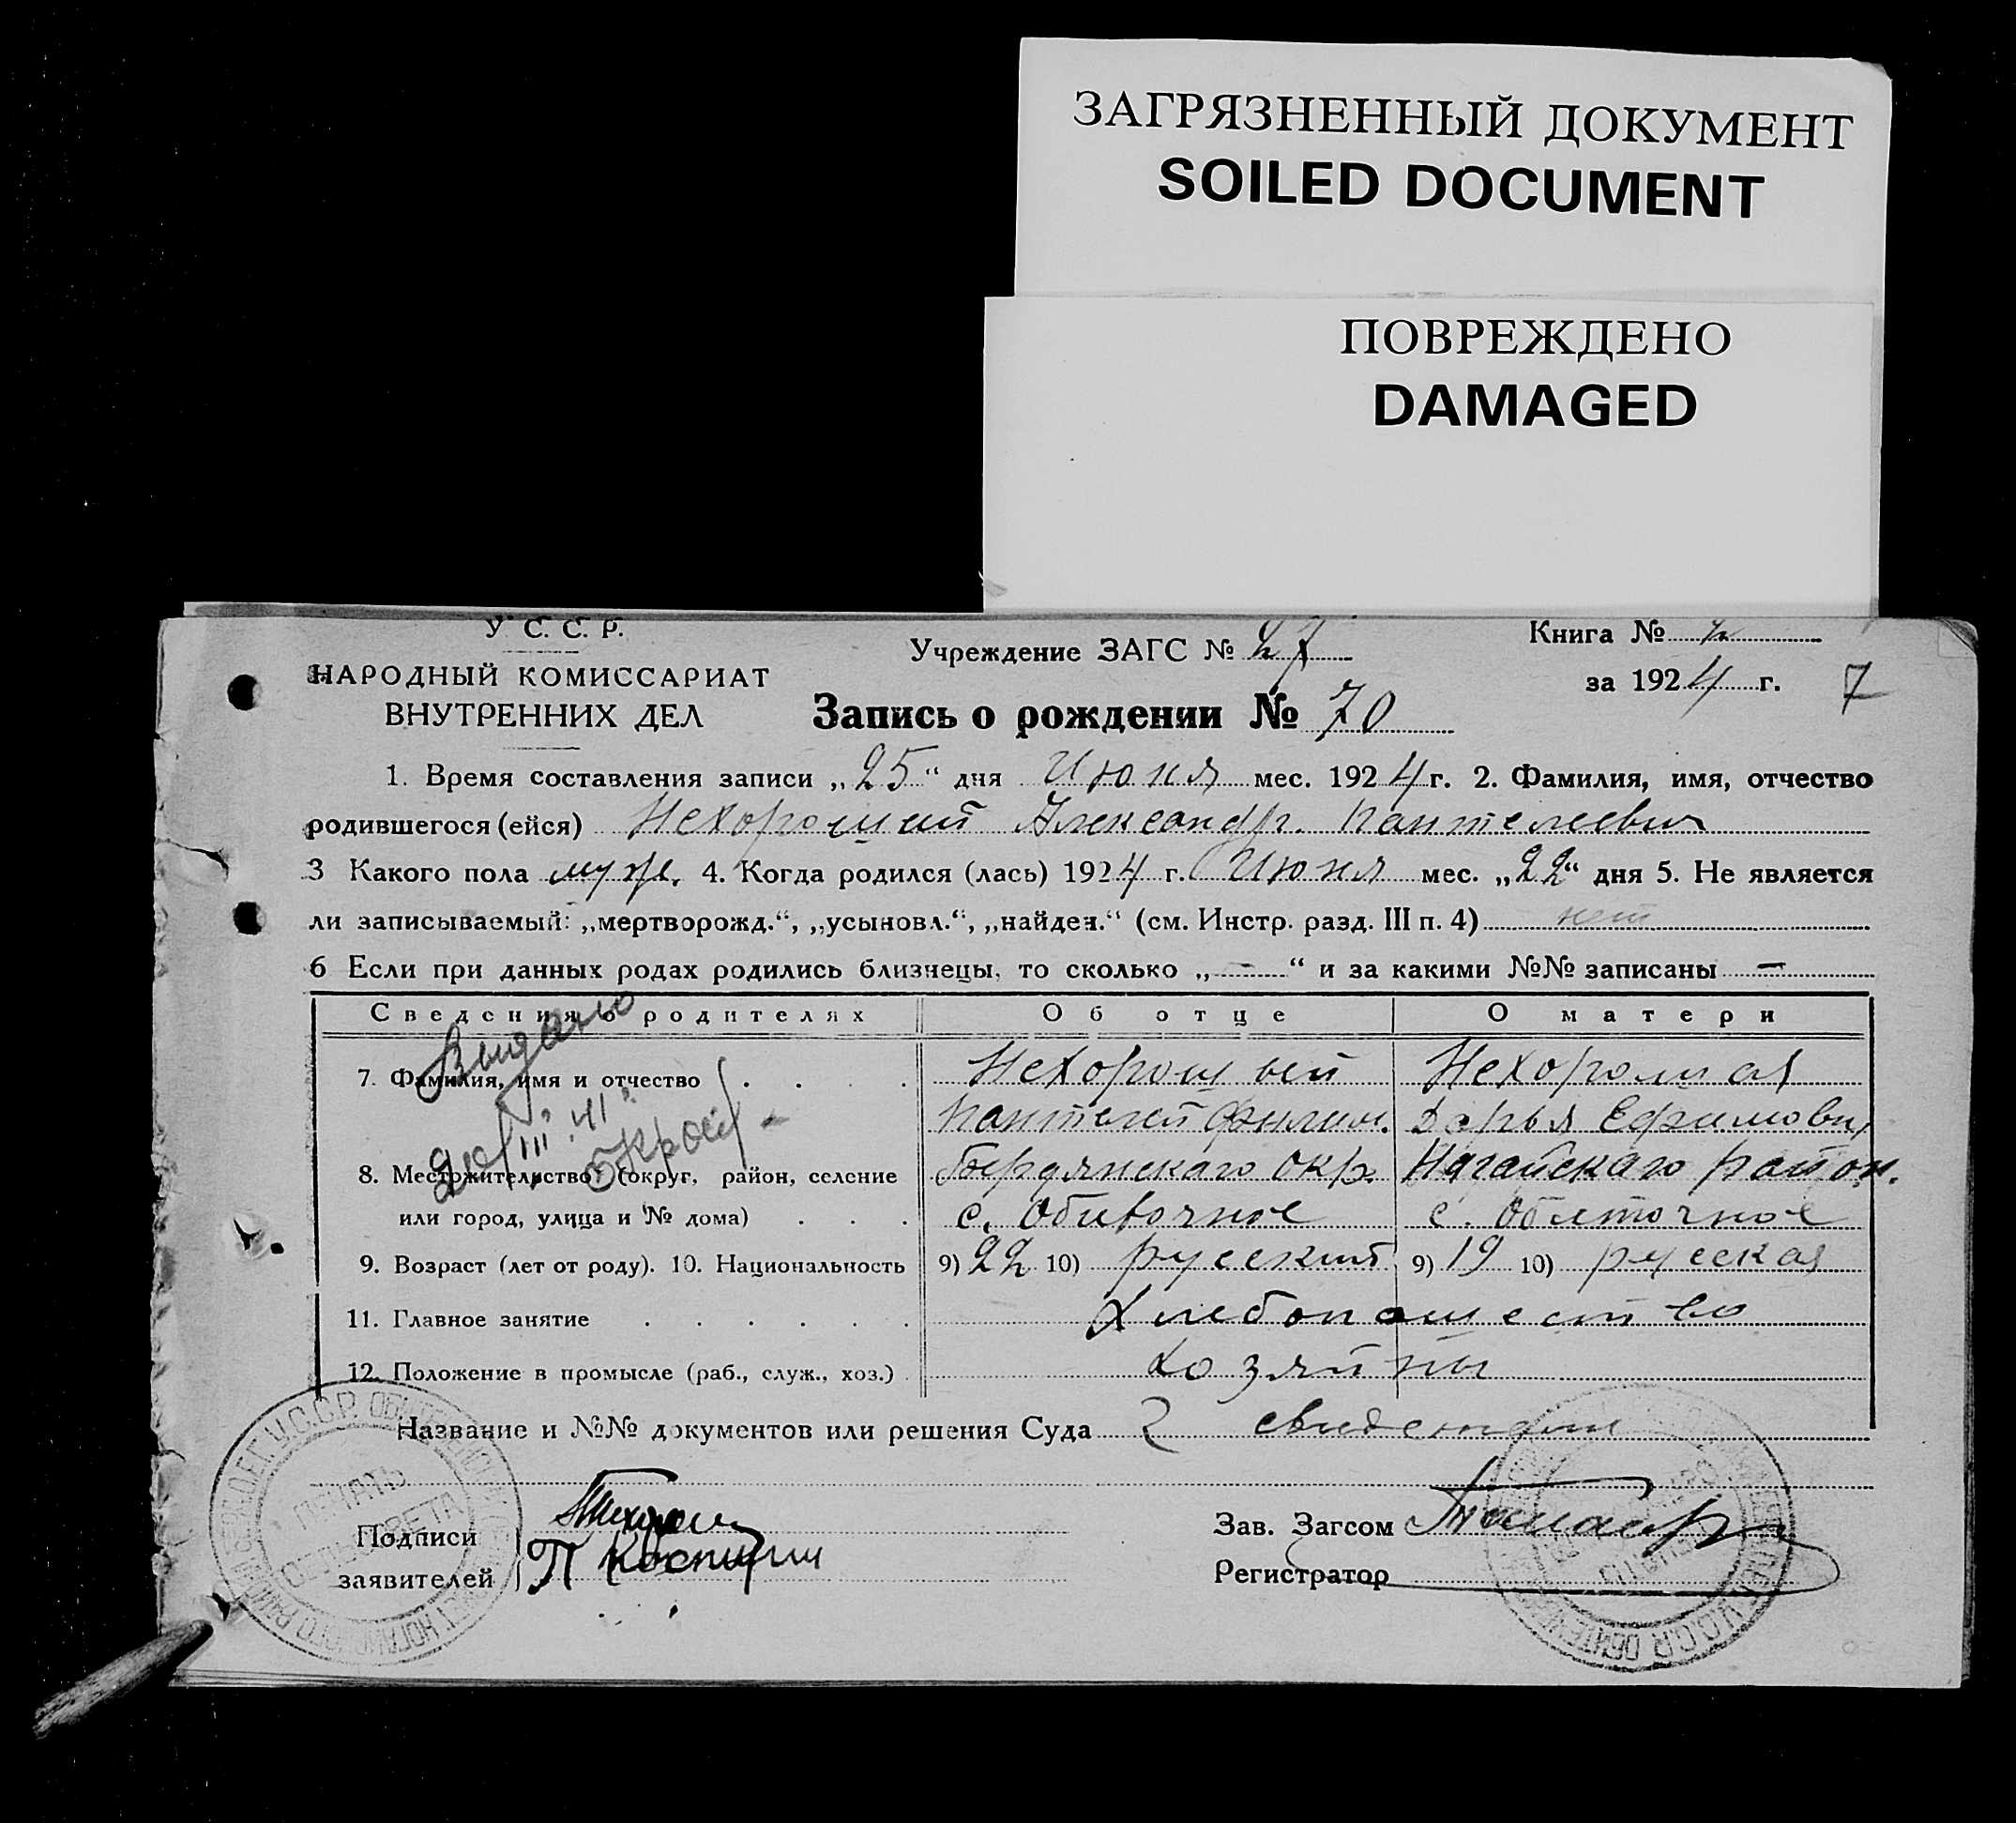 ЗАГРЯЗНЕННЫЙ ДОКУМЕНТ
SOILED DOCUMENT
ПОВРЕЖДЕНО
DAMAGED
У. С. С. Р.
НАРОДНЫЙ КОМИССАРИАТ
ВНУТРЕННИХ ДЕЛ
Учреждение ЗАГС № 27
Книга №
за 1924 г.
7
Запись о рождении № 70
1. Время составления записи „25“ дня Июня мес. 1924 г. 2. Фамилия, имя, отчество
родившегося (ейся) Нехороший Александр. Пантелеевич
3 Какого пола муж. 4. Когда родился (лась) 1924 г. Июня мес. „22“ дня 5. Не является
ли записываемый: „мертворожд.“, „усыновл.“, „найден.“ (см. Инстр. разд. III п. 4) нет
6 Если при данных родах родились близнецы, то сколько „-“ и за какими №№ записаны -
Сведения о родителях Об отце О матери
Выдано
7. Фамилия, имя и отчество Нехороший Нехорошая
Пантелей Филип. Дарья Ефимовн.
8. Местожительство (округ, район, селение Бердянскаго окр. Нагайскаго район.
или город, улица и № дома) с. Обиточное с. Обиточное
9. Возраст (лет от роду). 10. Национальность 9) 22 10) русский 9) 19 10) русская
11. Главное занятие Хлебопашество
12. Положение в промысле (раб., служ., хоз.) хозяйны
Название и №№ документов или решения Суда 2 свидетели
Подписи
заявителей
Зав. Загсом
Регистратор